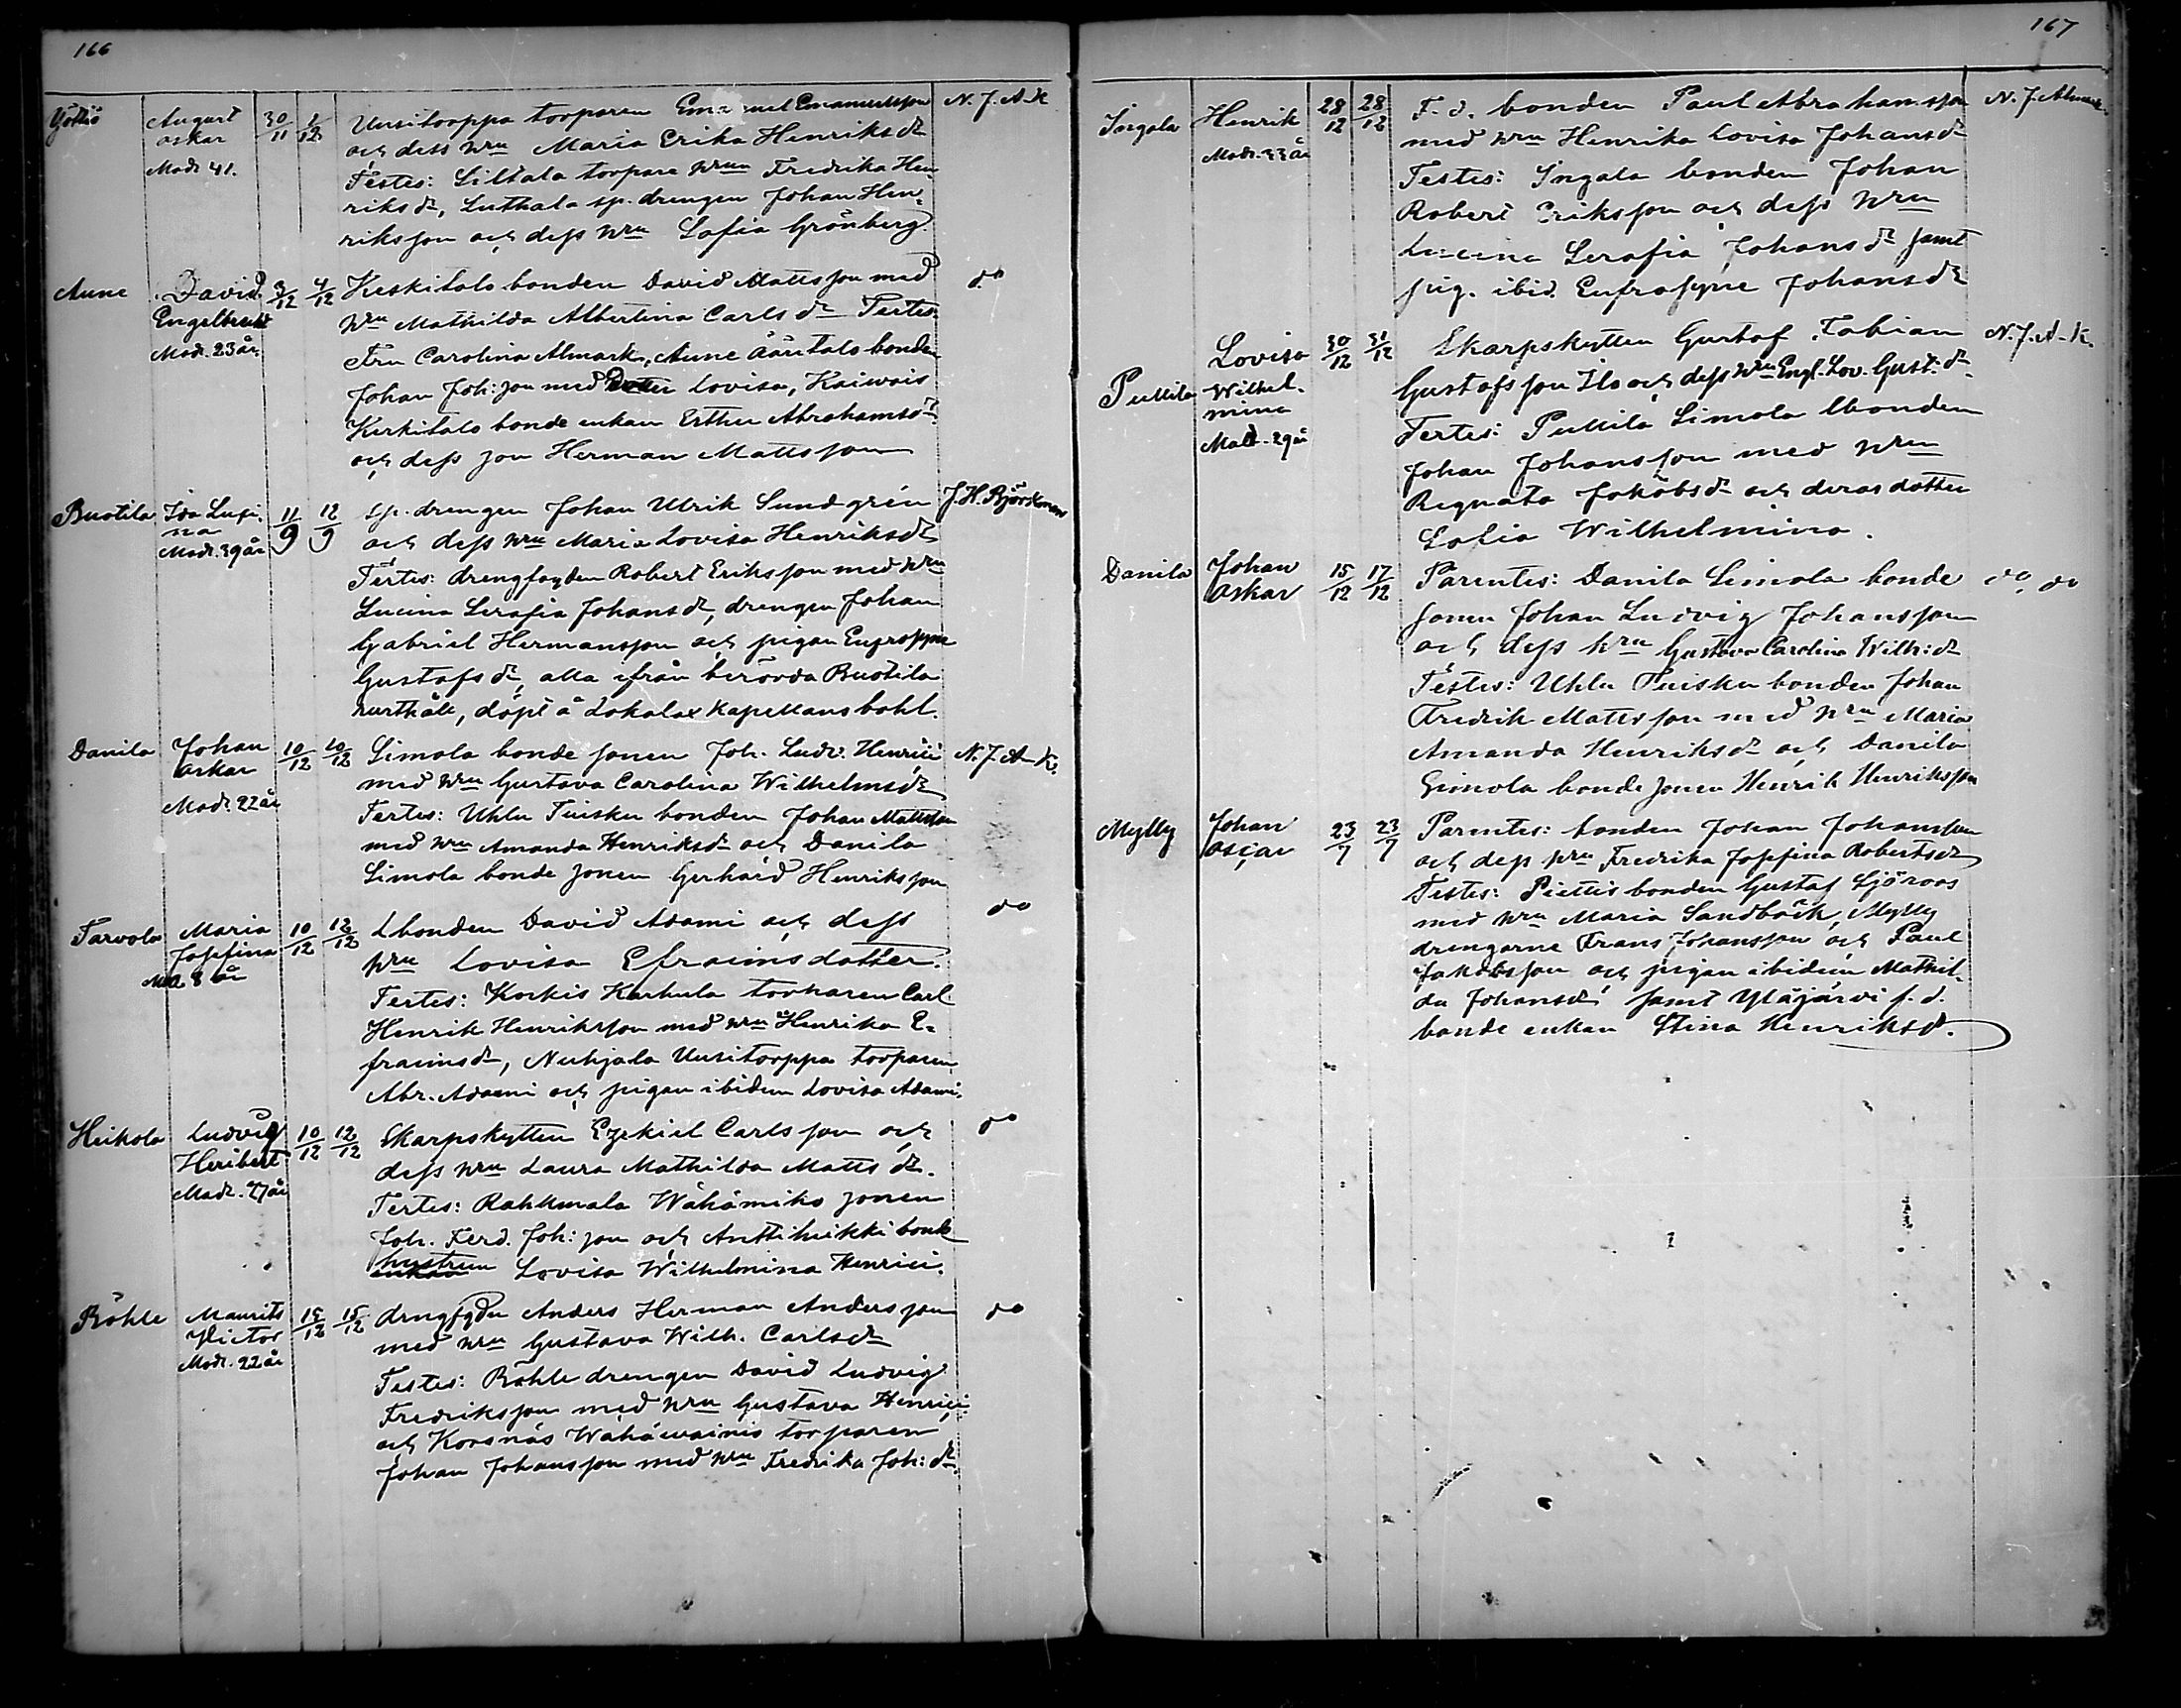 166
Yöttiö August oskar Modr 41. 30/11 1/12 Uusitorppa torparen Emanuel Emanuelsson N. J. A. K
och dess hru Maria Erika Henriksdr
Testes: Siltala torpare hrun Fredrika Hen-
riksdr, Luthala sp. drengen Johan Hen-
riksson och dess hru Sofia Grönberg.
Aune David Engelbrecht Modr. 23 år 3/12 4/12 Keskitalo bonden David Mattsson med do
hru Mathilda Albertina Carlsdr Testes:
Fru Carolina Almark, Aune Ääritalo bonden
Johan Joh:son med Lovisa, Kaiwois
Kerkitalo bonde enkan Esther Abrahamsdr
och dess son Herman Mattsson
Ruotila Ida Lusina Modr. 39 år 11/9 12/9 sp. drengen Johan Ulrik Sundgrén J. H. Björkman
och dess hru Maria Lovisa Henriksdr
Testes: drengfogden Robert Eriksson med hru
Lucina Serafia Johansdr, drengen Johan
Gabriel Hermansson och pigan Eufrosyne
Gustafsdr, alla ifrån berörda Ruotila
rusthåll, döpt å Lokalax Kapellansbohl.
Danila Johan oskar Modr. 22 år 10/12 10/12 Simola bonde sonen Joh. Ludv. Henrici N. J. A-k.
med hru Gustava Carolina Wilhelmsdr
Testes: Uhlu Tuisku bonden Johan Mattsson
med hru Amanda Henriksdr och Danila
Simola bonde sonen Gerhard Henriksson
Tarvola Maria Josefina 10/12 12/12 Lbonden David Adami och dess do
hru Lovisa Efraimsdotter.
Testes: Korkis Karhula torparen Carl
Henrik Henriksson med hru Henrika E-
fraimsdr, Nuhjala Uusitorppa torparen
Abr. Adami och pigan ibidem Lovisa Adami.
Heikola Ludvig Heribert Modr. 27 år 10/12 12/12 Skarpskytten Ezekiel Carlsson och do
dess hru Laura Mathilda Mattsdr.
Testes: Rahkmala Wähämiko sonen
Joh. Ferd. Joh:son och Anttiheikki bonde
hustrun Lovisa Wilhelmina Henrici.
Röhle Maurits Victor Modr. 22 år 15/12 15/12 drngfgdn Anders Herman Andersson do
med hru Gustava Wilh. Carlsdr
Testes: Röhle drengen David Ludvig
Fredriksson med hru Gustava Henrici
och Korsnäs Wähäwainio torparen
Johan Johansson med hru Fredrika Joh:dr.
167
Ingala Henrik Modr. 33 år 28/12 28/12 F. d. bonden Paul Abrahamsson N. J. Almark
med hru Henrika Lovisa Johansdr
Testes: Ingala bonden Johan
Robert Eriksson och dess hru
Lucina Serafia Johansdr samt
pig. ibid. Eufrosyne Johansdr
Pullila Lovisa Wilhelmina Modr. 29 år 30/12 31/12 Skarpskytten Gustaf Fabian N. J. A-k.
Gustafsson Ilo och dess hru Engl. Lov. Gust:dr
Testes: Pullila Simola lbonden
Johan Johansson med hru
Regnata Jakobsdr och deras dotter
Sofia Wilhelmina.
Danila Johan Oskar 15/12 17/12 Parentes: Danila Simola bonde do. do
sonen Johan Ludvig Johansson
och dess hru Gustava Carolina Wilh:dr
Testes: Uhlu Tuisku bonden Johan
Fredrik Mattsson med hru Maria
Amanda Henriksdr och Danila
Simola bonde sonen Henrik Henriksson
Mylly Johan Oscar 23/7 23/7 Parentes: bonden Johan Johansson
och dess hru Fredrika Josefina Robertsdr
Testes: Piettis bonden Gustaf Sjöroos
med hru Maria Sandbäck, Mylly
drengarne Frans Johansson och Paul
Jakobsson och pigan ibidem Mathil-
da Johansdr samt Yläjärvi f. d.
bonde enkan Stina Henriksdr.